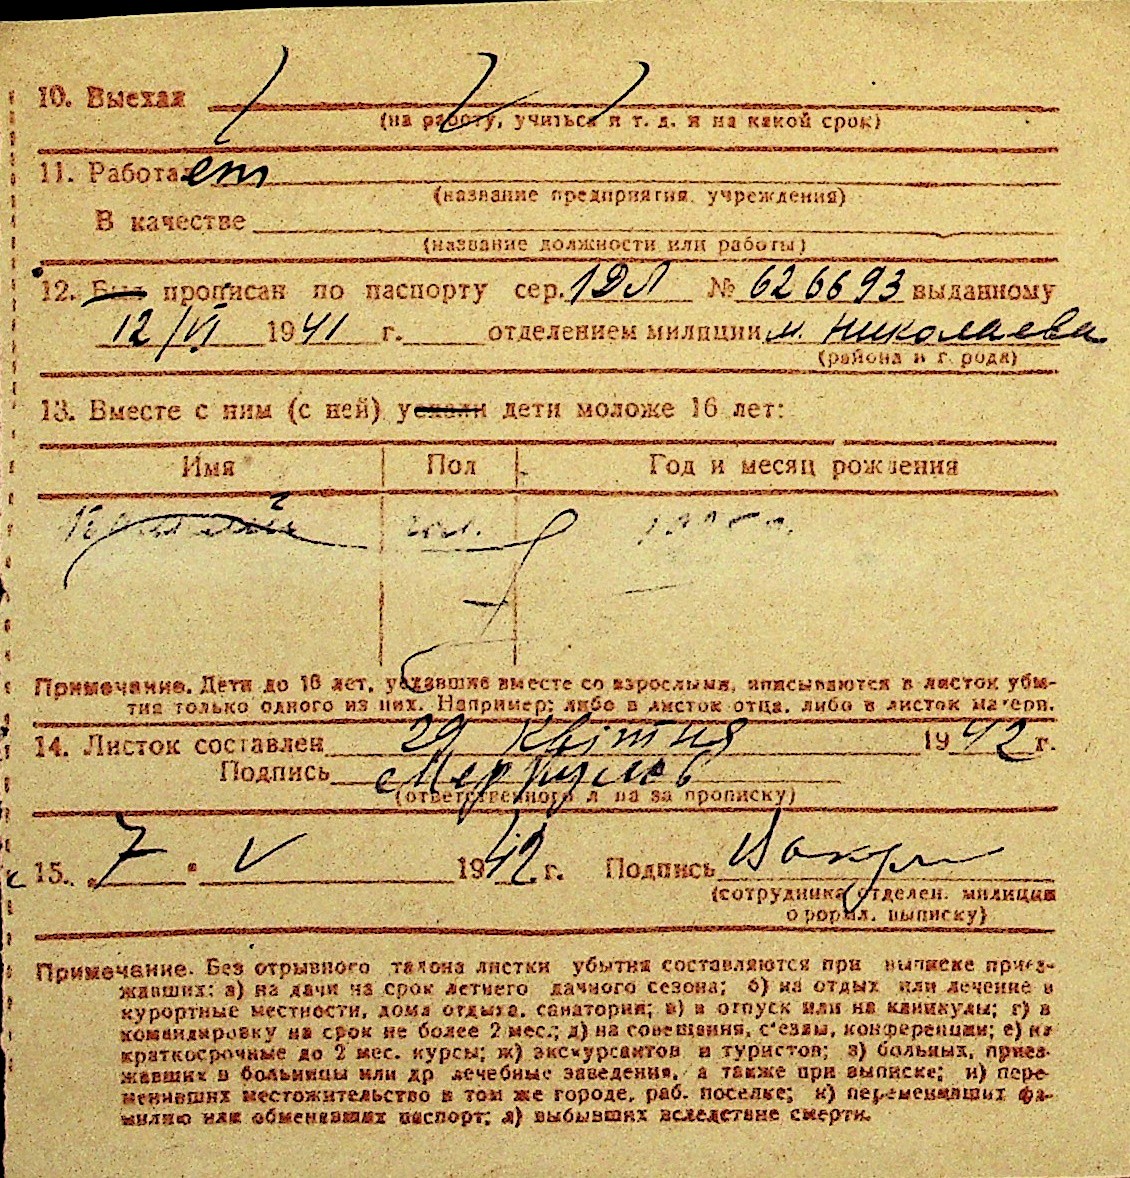 10. Выехал
(на работу, учиться и т. д. и на какой срок)
11. Работает
(название предприятия, учреждения)
В качестве
(название должности или работы)
12. Был прописан по паспорту сер. 1ДЛ № 626693 выданному
12/VI 1941 г. отделением милиции м. Николаева
(района и города)
13. Вместе с ним (с ней) уехали дети моложе 16 лет:
Имя Пол Год и месяц рождения
Примечание. Дети до 16 лет, уехавшие вместе со взрослыми, вписываются в листок убы-
тия только одного из них. Например: либо в листок отца, либо в листок матери.
14. Листок составлен 29 квітня 1942 г.
Подпись Меркулов
(ответственного л на за прописку)
15. 7 " V 1942 г. Подпись
(сотрудника отделен. милиции
оформл. выписку)
Примечание. Без отрывного талона листки убытия составляются при выписке приез-
жавших: а) на дачи на срок летнего дачного сезона; б) на отдых или лечение в
курортные местности, дома отдыха, санатория; в) в отпуск или на каникулы; г) в
командировку на срок не более 2 мес.; д) на совещания, с'езды, конференции; е) на
краткосрочные до 2 мес. курсы; ж) экскурсантов и туристов; з) больных, приез-
жавших в больницы или др лечебные заведения, а также при выписке; и) пере-
менивших местожительство в том же городе, раб. поселке; к) переменивших фа-
милию или обменявших паспорт; л) выбывших вследствие смерти.